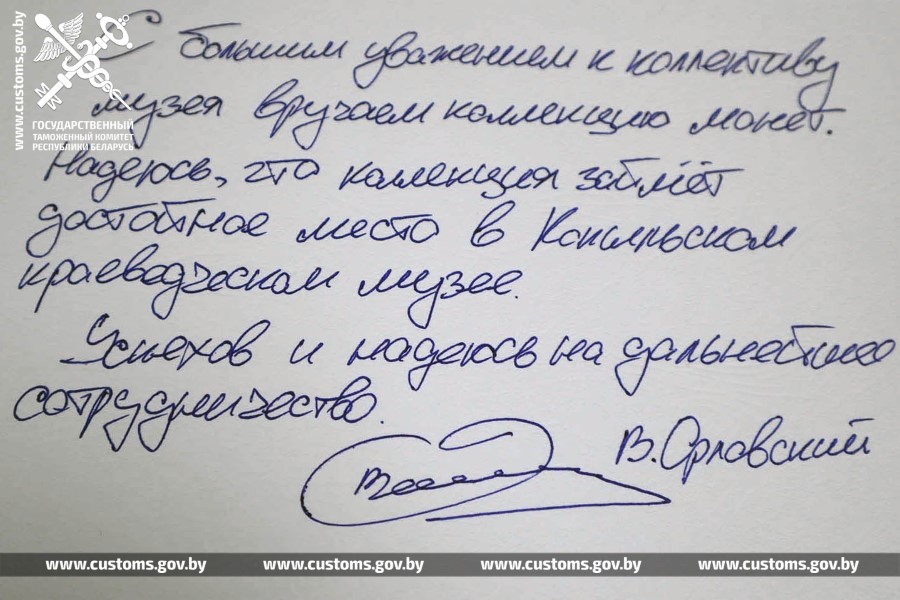 www.customs.gov.by
ГОСУДАРСТВЕННЫЙ
ТАМОЖЕННЫЙ КОМИТЕТ
РЕСПУБЛИКИ БЕЛАРУСЬ
С большим уважением к коллективу
музея вручаем коллекцию монет.
Надеюсь, что коллекция займёт
достойное место в Копыльском
краеведческом музее.
Успехов и надеюсь на дальнейшее
сотрудничество.
В. Орловский
www.customs.gov.by www.customs.gov.by www.customs.gov.by www.customs.gov.by